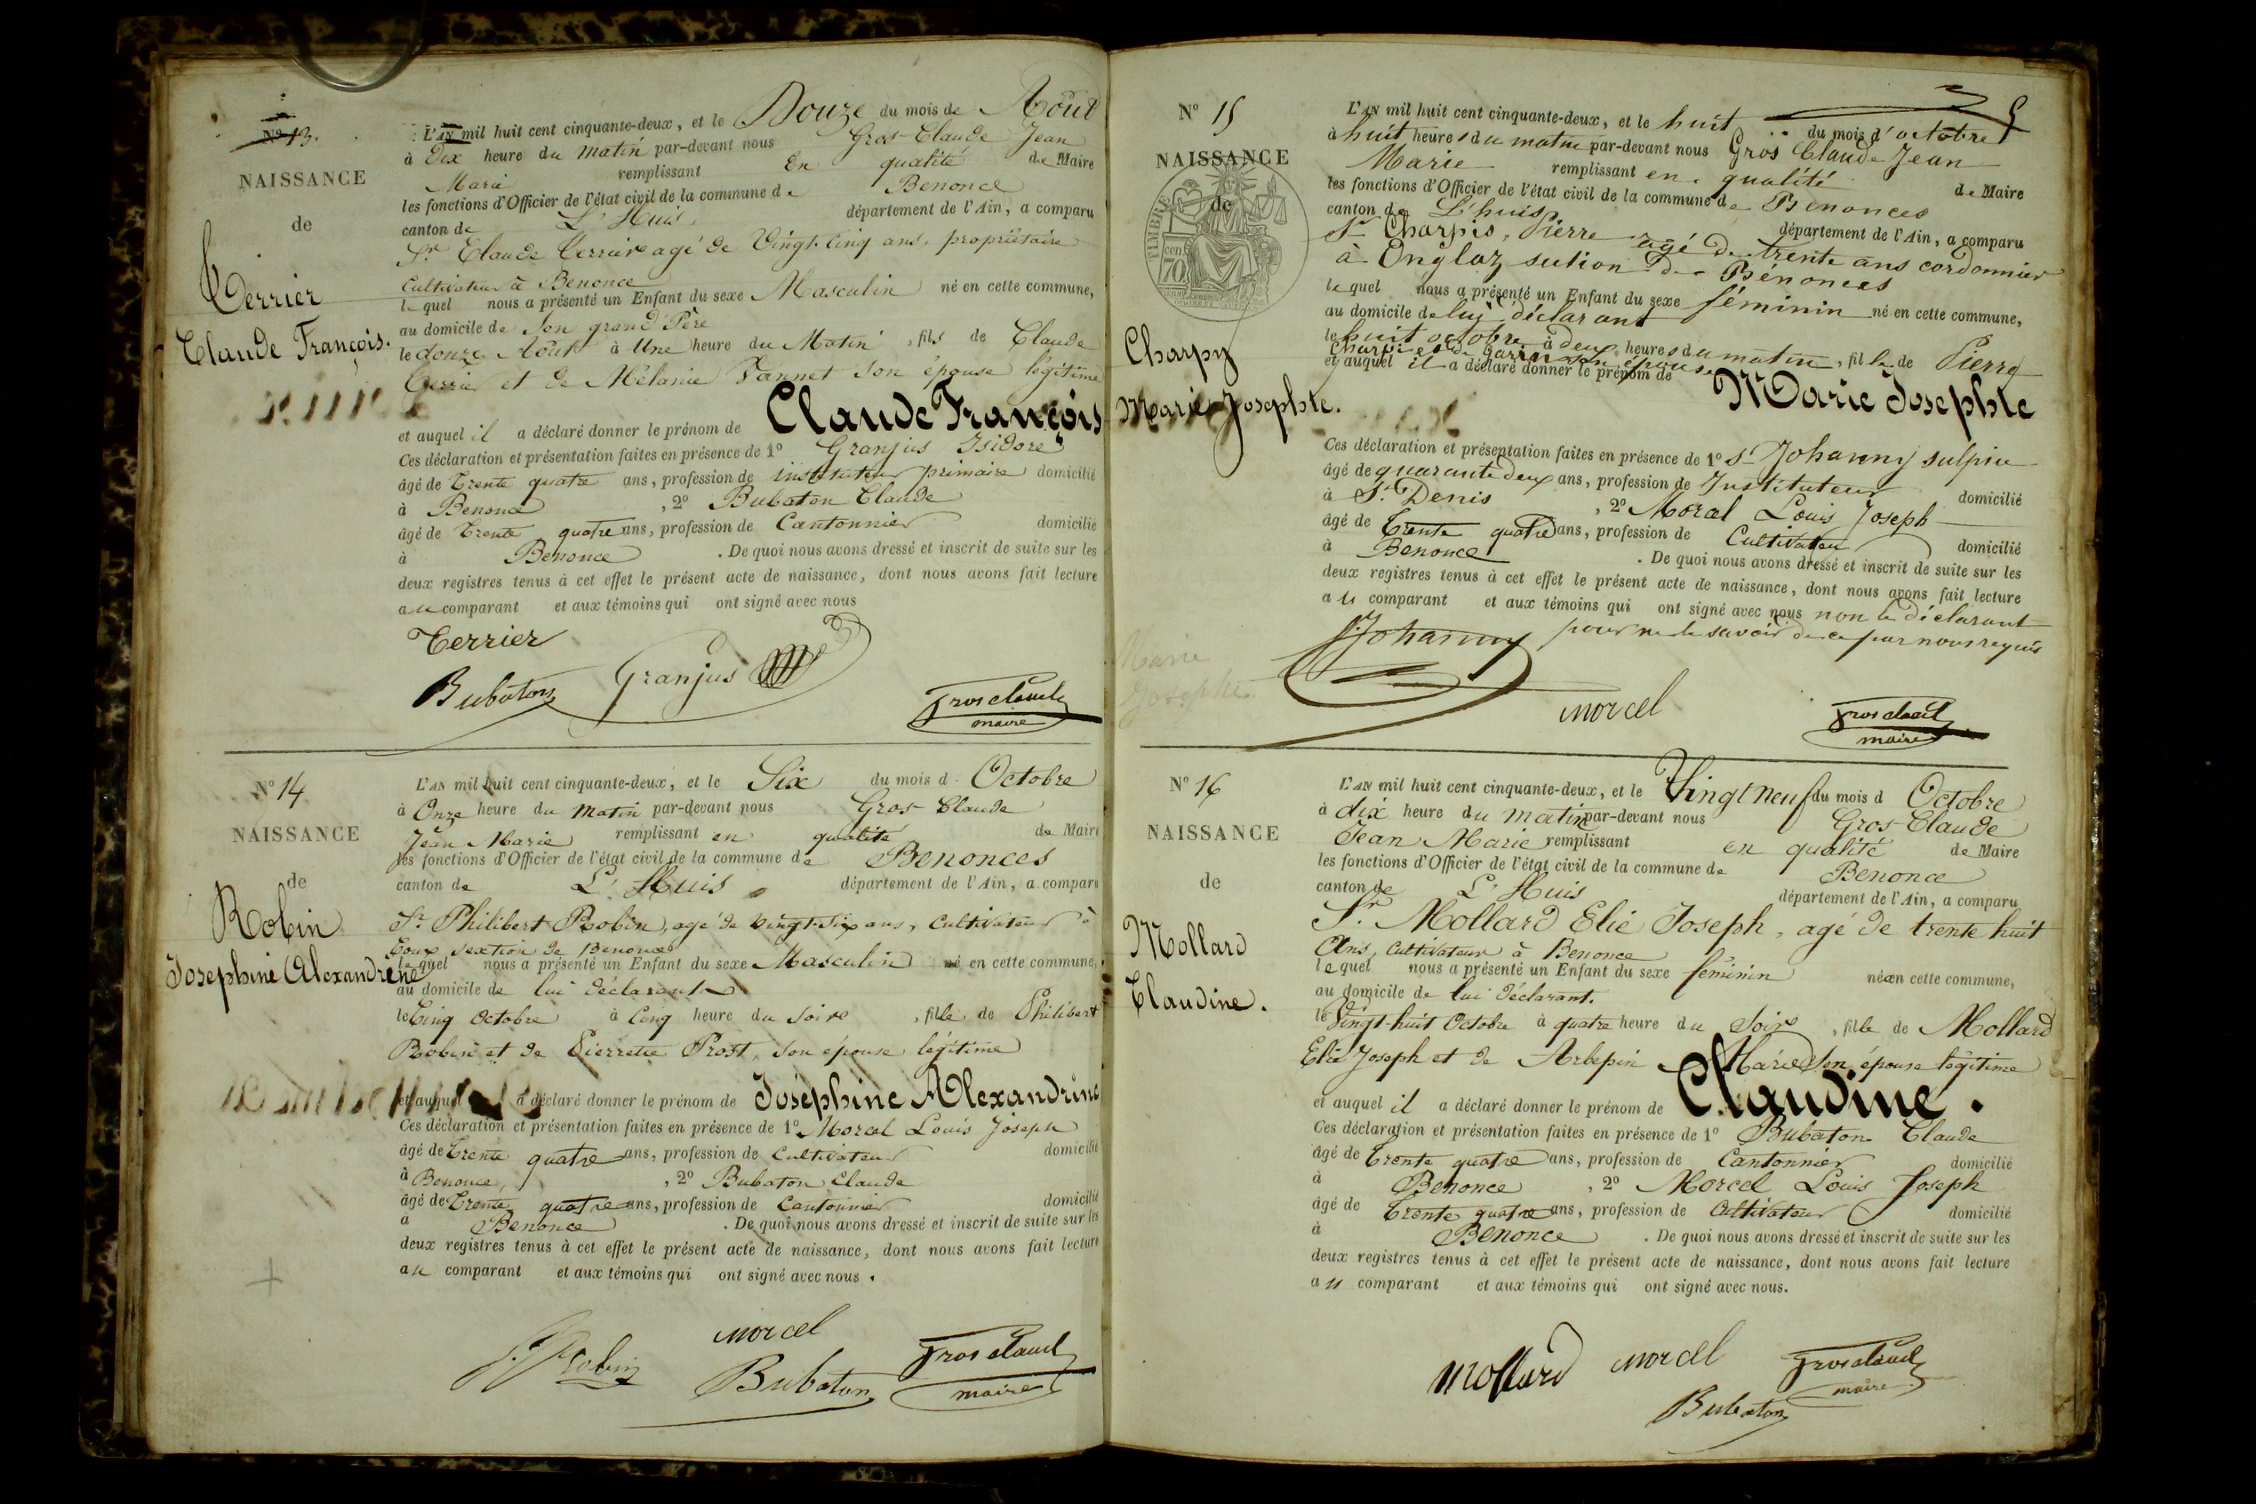 N° 13.
NAISSANCE
de
Terrier
Claude François.
L'AN mil huit cent cinquante-deux, et le Douze du mois de Août
à Dix heure du matin par-devant nous Gros Claude Jean
Marie remplissant En qualité de Maire
les fonctions d'Officier de l'état civil de la commune de Benonce
canton de L'Huis département de l'Ain, a comparu
Sr Claude Terrier agé de Vingt-Cinq ans, propriétaire
Cultivateur à Benonce
lequel nous a présenté un Enfant du sexe Masculin né en cette commune,
au domicile de Son grand Père
le douze Août à Une heure du Matin, fils de Claude
Terrier et de Mélanie Jannet Son épouse légitime
et auquel il a déclaré donner le prénom de Claude François
Ces déclaration et présentation faites en présence de 1° Granjus Isidore
âgé de Trente quatre ans, profession de instituteur primaire domicilié
à Benonce, 2° Bubaton Claude
âgé de Trente quatre ans, profession de Cantonnier domicilié
à Benonce. De quoi nous avons dressé et inscrit de suite sur les
deux registres tenus à cet effet le présent acte de naissance, dont nous avons fait lecture
au comparant et aux témoins qui ont signé avec nous
Terrier
Bubaton Granjus Grosclaude
maire
N° 14
NAISSANCE
de
Robin
Josephine Alexandrine
L'AN mil huit cent cinquante-deux, et le Six du mois d Octobre
à Onze heure du matin par-devant nous Gros Claude
Jean Marie remplissant en qualité de Maire
les fonctions d'Officier de l'état civil de la commune de Benonces
canton de L'Huis département de l'Ain, a comparu
Sr Philibert Robin, agé de vingt-Six ans, Cultivateur à
Onglas section de Benonce
lequel nous a présenté un Enfant du sexe Masculin né en cette commune,
au domicile de lui déclarant
le Cinq Octobre à Cinq heure du Soire, fille de Philibert
Robin et de Pierrette Prost, Son épouse légitime
et auquel a déclaré donner le prénom de Joséphine Alexandrine
Ces déclaration et présentation faites en présence de 1° Morcel Louis Joseph
âgé de Trente quatre ans, profession de Cultivateur domicilié
à Benonce, 2° Bubaton Claude
âgé de Trente quatre ans, profession de Cantonnier domicilié
à Benonce. De quoi nous avons dressé et inscrit de suite sur les
deux registres tenus à cet effet le présent acte de naissance, dont nous avons fait lecture
au comparant et aux témoins qui ont signé avec nous.
Robin morcel Grosclaude
Bubaton maire
N° 15
NAISSANCE
de
TIMBRE
70 cen
Charpy
Marie Josephte.
Marie
Josephte
L'AN mil huit cent cinquante-deux, et le huit du mois d'octobre
à huit heures du matin par-devant nous Gros Claude Jean
Marie remplissant en qualité de Maire
les fonctions d'Officier de l'état civil de la commune de Bénonces
canton de L'huis département de l'Ain, a comparu
Sr Charpis, Pierre agé de trente ans cordonnier
à Onglaz section de Bénonces
lequel nous a présenté un Enfant du sexe féminin né en cette commune,
au domicile de lui déclarant
le huit octobre à deux heures du matin, fille de Pierre
Charpi et de Garin son épouse
et auquel il a déclaré donner le prénom de Marie Josephte
Ces déclaration et présentation faites en présence de 1° Sr Johanny sulpice
âgé de quarante deux ans, profession de Instituteur domicilié
à St Denis, 2° Morcel Louis Joseph
âgé de Trente quatre ans, profession de Cultivateur domicilié
à Benonce. De quoi nous avons dressé et inscrit de suite sur les
deux registres tenus à cet effet le présent acte de naissance, dont nous avons fait lecture
au comparant et aux témoins qui ont signé avec nous non le déclarant
pour ne le savoir de ce par nous requis
S. Johanny
morcel Grosclaude
maire
N° 16
NAISSANCE
de
Mollard
Claudine.
L'AN mil huit cent cinquante-deux, et le Vingt neuf du mois d Octobre
à dix heure du matin par-devant nous Gros Claude
Jean Marie remplissant en qualité de Maire
les fonctions d'Officier de l'état civil de la commune de Benonce
canton de L'Huis département de l'Ain, a comparu
Sr. Mollard Elié Joseph, agé de trente huit
Ans, Cultivateur à Benonce
lequel nous a présenté un Enfant du sexe féminin née en cette commune,
au domicile de lui déclarant.
le Vingt-huit Octobre à quatre heure du Soire, fille de Mollard
Elié Joseph et de Arbepin Marie Son épouse légitime
et auquel il a déclaré donner le prénom de Claudine.
Ces déclaration et présentation faites en présence de 1° Bubaton Claude
âgé de Trente quatre ans, profession de Cantonnier domicilié
à Benonce, 2° Morcel Louis Joseph
âgé de Trente quatre ans, profession de Cultivateur domicilié
à Benonce. De quoi nous avons dressé et inscrit de suite sur les
deux registres tenus à cet effet le présent acte de naissance, dont nous avons fait lecture
au comparant et aux témoins qui ont signé avec nous.
Mollard morcel Grosclaude
maire
Bubaton